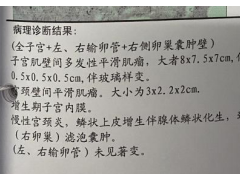 病理诊断结果:
(全子宫+左、右输卵管+右侧卵巢囊肿壁)
子宫肌壁间多发性平滑肌瘤,大者8x7.5x7cm,
0.5x0.5x0.5cm,伴玻璃样变。
宫颈壁间平滑肌瘤。大小为3x2.2x2cm.
增生期子宫内膜。
慢性宫颈炎,鳞状上皮增生伴腺体鳞状化生,
(右卵巢)滤泡囊肿。
(左、右输卵管)未见著变。